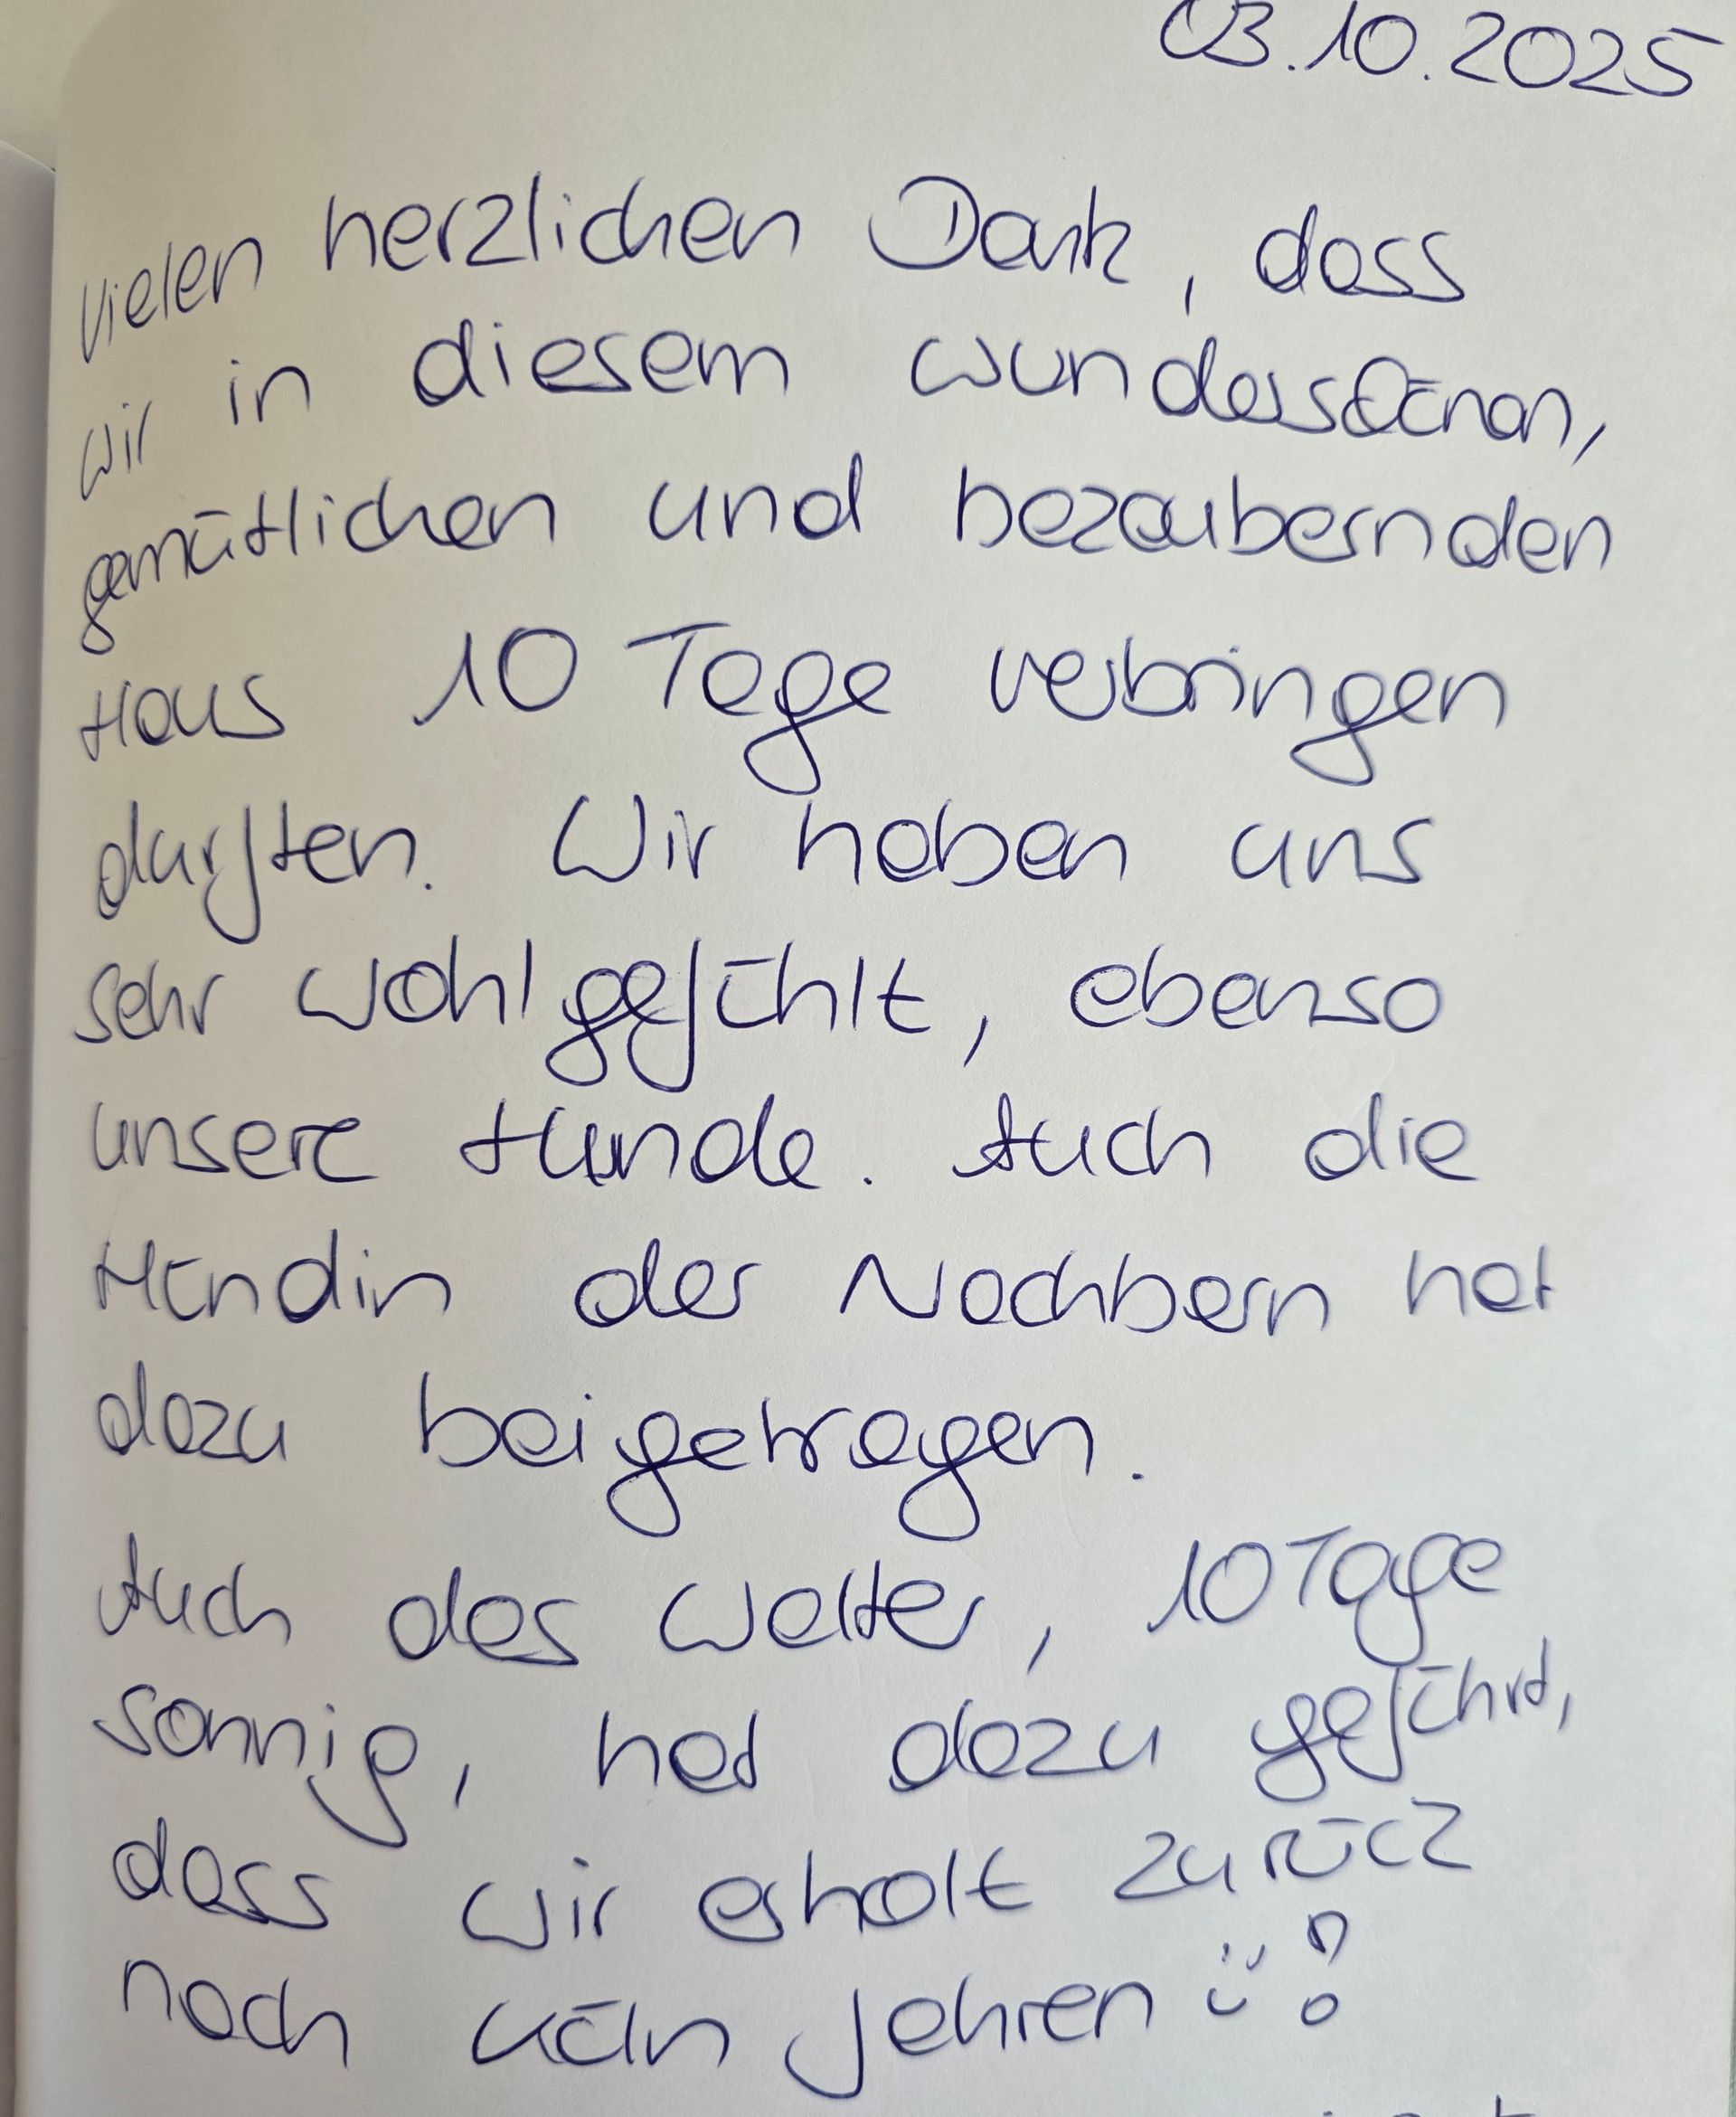 03.10.2025
vielen herzlichen Dank, dass
wir in diesem wunderschönen,
gemütlichen und bezaubernden
Haus 10 Tage verbringen
durften. Wir haben uns
sehr wohl gefühlt, ebenso
unsere Hunde. Auch die
Hündin der Nachbarn hat
dazu beigetragen.
Auch das Wetter, 10 Tage
sonnig, hat dazu geführt,
dass wir erholt zurück
nach Köln fahren :) !